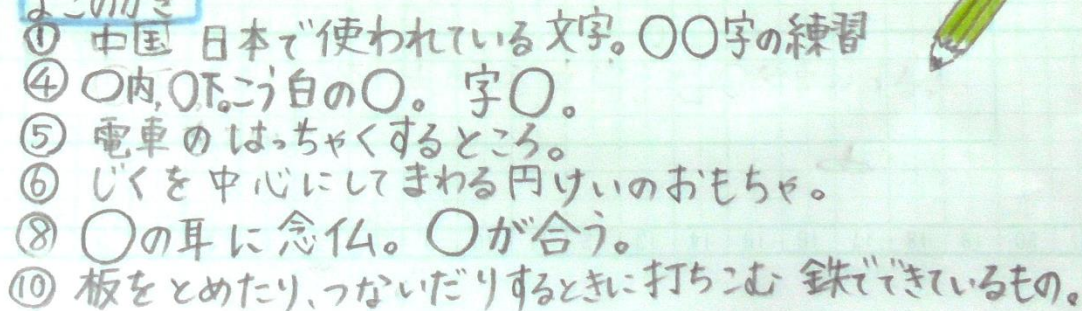 よこのかぎ
① 中国 日本で使われている文字。〇〇字の練習
④ 〇内,〇下。こう白の〇。 字〇。
⑤ 電車のはっちゃくするところ。
⑥ じくを中心にしてまわる円けいのおもちゃ。
⑧ 〇の耳に念仏。〇が合う。
⑩ 板をとめたり、つないだりするときに打ちこむ 鉄でできているもの。